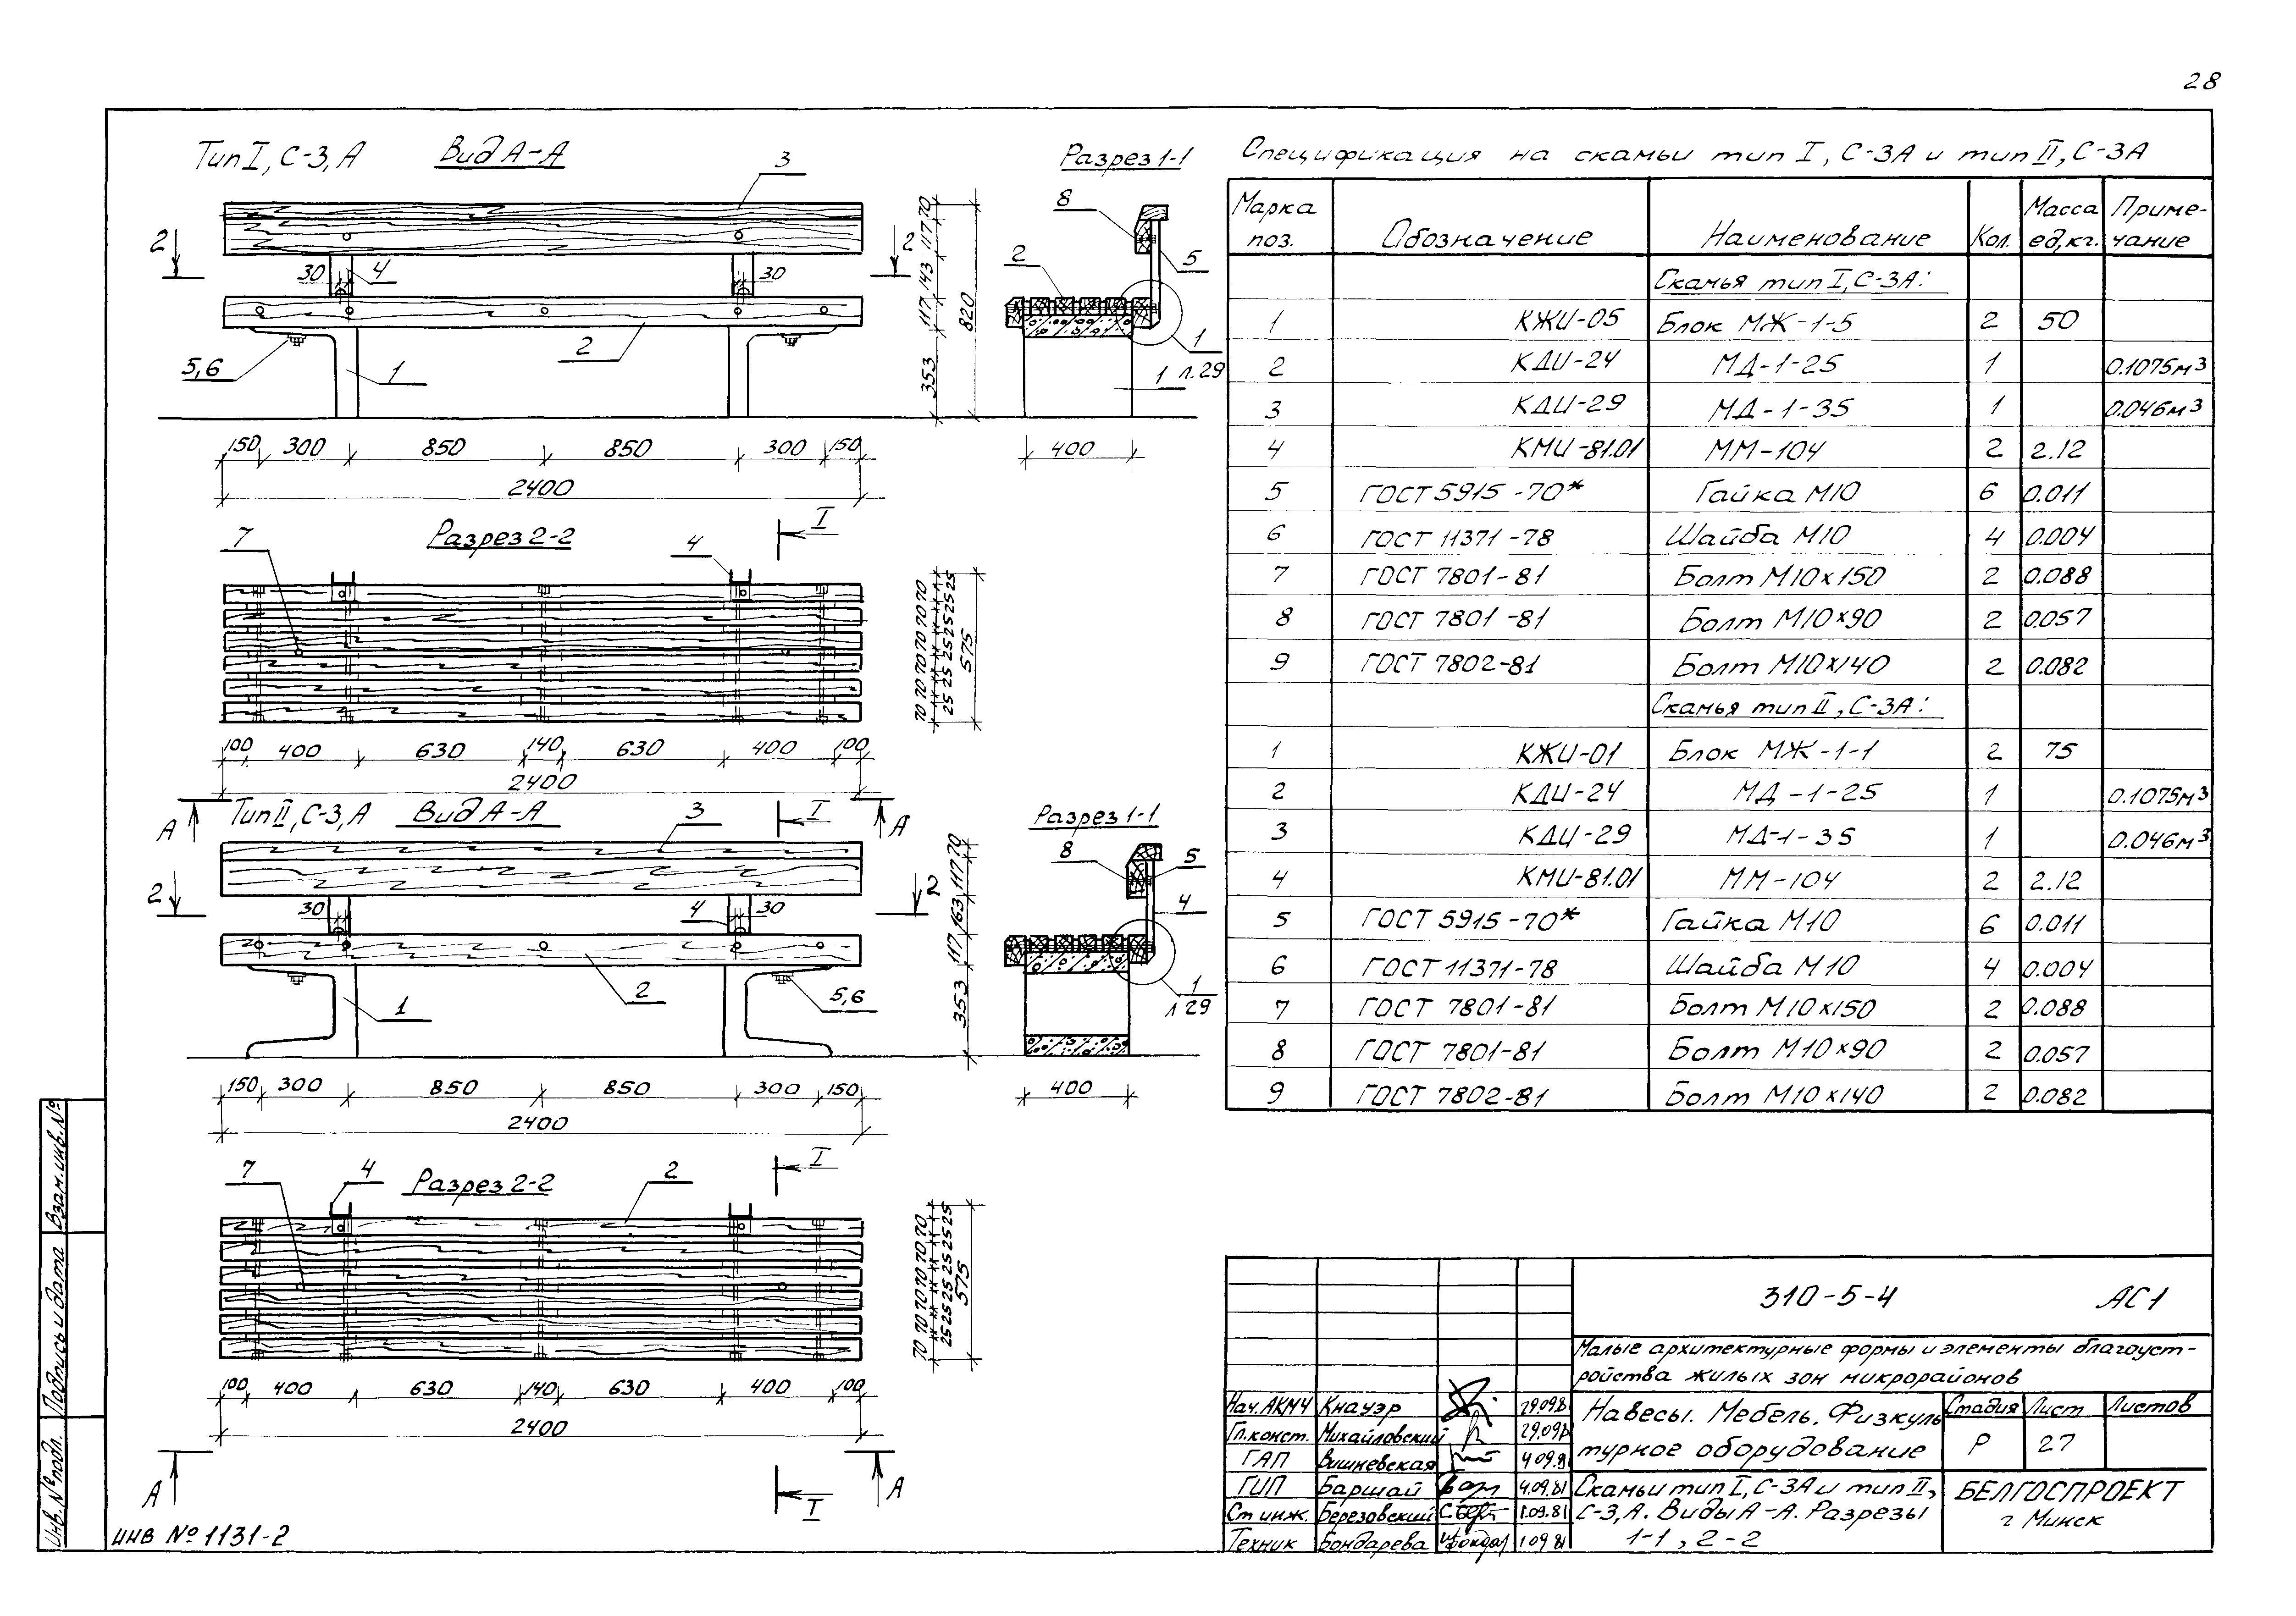 28
Тип I, С-3, А
Вид А-А
3
2
2
30
4
30
5,6
1
2
353 117 143 117 70
820
150 300 850 850 300 150
2400
Разрез 1-1
8
2
5
1
л.29
1
400
Разрез 2-2
7
4
I
70 70 70 70 70 70
25 25 25 25 25
575
100 400 630 140 630 400 100
2400
А
А
I
Тип II, С-3, А
Вид А-А
3
2
2
30
4
30
1
2
5,6
353 117 163 117 70
150 300 850 850 300 150
2400
Разрез 1-1
8
5
4
1
л 29
400
Разрез 2-2
7
4
2
I
70 70 70 70 70 70
25 25 25 25 25
575
100 400 630 140 630 400 100
2400
А
А
I
Спецификация на скамьи тип I, С-3А и тип II, С-3А
Марка поз. Обозначение Наименование Кол. Масса ед,кг. Приме-чание
Скамья тип I, С-3А:
1 КЖИ-05 Блок МЖ-1-5 2 50
2 КДИ-24 МД-1-25 1 0.1075м³
3 КДИ-29 МД-1-35 1 0.046м³
4 КМИ-81.01 ММ-104 2 2.12
5 ГОСТ 5915-70* Гайка М10 6 0.011
6 ГОСТ 11371-78 Шайба М10 4 0.004
7 ГОСТ 7801-81 Болт М10х150 2 0.088
8 ГОСТ 7801-81 Болт М10х90 2 0.057
9 ГОСТ 7802-81 Болт М10х140 2 0.082
Скамья тип II, С-3А:
1 КЖИ-01 Блок МЖ-1-1 2 75
2 КДИ-24 МД-1-25 1 0.1075м³
3 КДИ-29 МД-1-35 1 0.046м³
4 КМИ-81.01 ММ-104 2 2.12
5 ГОСТ 5915-70* Гайка М10 6 0.011
6 ГОСТ 11371-78 Шайба М10 4 0.004
7 ГОСТ 7801-81 Болт М10х150 2 0.088
8 ГОСТ 7801-81 Болт М10х90 2 0.057
9 ГОСТ 7802-81 Болт М10х140 2 0.082
310-5-4 АС1
Малые архитектурные формы и элементы благоуст-
ройства жилых зон микрорайонов
Нач.АКМ4 Кнауэр 29.09.8
Гл.конст. Михайловский 29.09.8
ГАП Вишневская 4.09.8
ГИП Баршай 4.09.81
Ст инж. Березовский 1.09.81
Техник Бондарева 1 09 81
Навесы. Мебель. Физкуль
турное оборудование
Стадия Лист Листов
Р 27
Скамьи тип I, С-3А и тип II,
С-3, А. Виды А-А. Разрезы
1-1, 2-2
БЕЛГОСПРОЕКТ
г Минск
Взам.инв.№
Подпись и дата
Инв.№подл.
ИНВ №1131-2